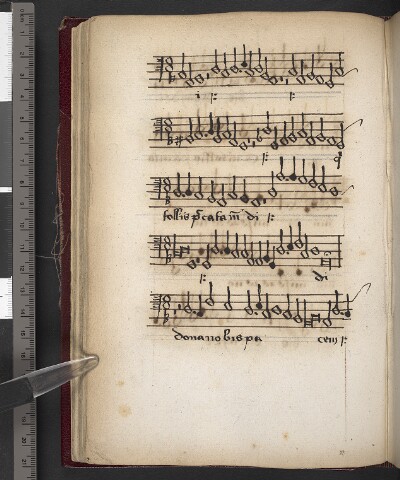 i
q
tollis pcata m di
di
dona nobis pa cem